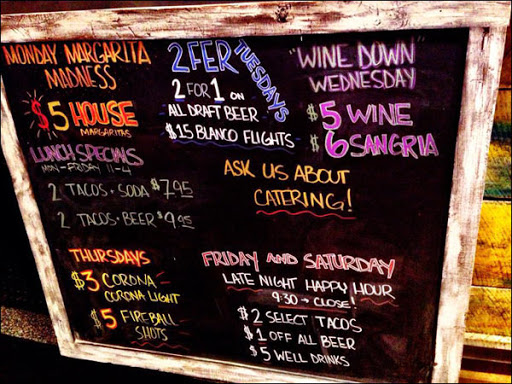 MONDAY MARGARITA
MADNESS
$5 HOUSE
MARGARITAS
LUNCH SPECIALS
MON-FRIDAY 11-4
2 TACOS · SODA $7.95
2 TACOS · BEER $9.95
2 FER TUESDAYS
2 FOR 1 ON
ALL DRAFT BEER
$15 BLANCO FLIGHTS
"WINE DOWN
WEDNESDAY"
$5 WINE
$6 SANGRIA
ASK US ABOUT
CATERING!
THURSDAYS
$3 CORONA
CORONA LIGHT
$5 FIREBALL
SHOTS
FRIDAY AND SATURDAY
LATE NIGHT HAPPY HOUR
9:30 → CLOSE!
$2 SELECT TACOS
$1 OFF ALL BEER
$5 WELL DRINKS